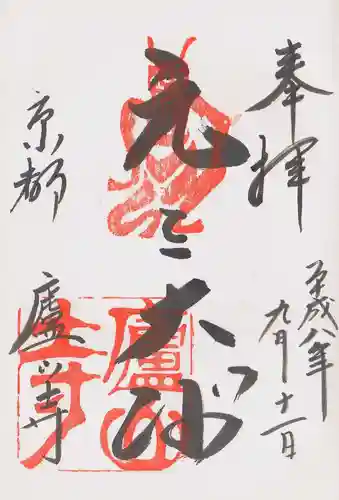 奉拝
平成八年
九月十一日
元三大師
京都
廬山寺
廬山寺